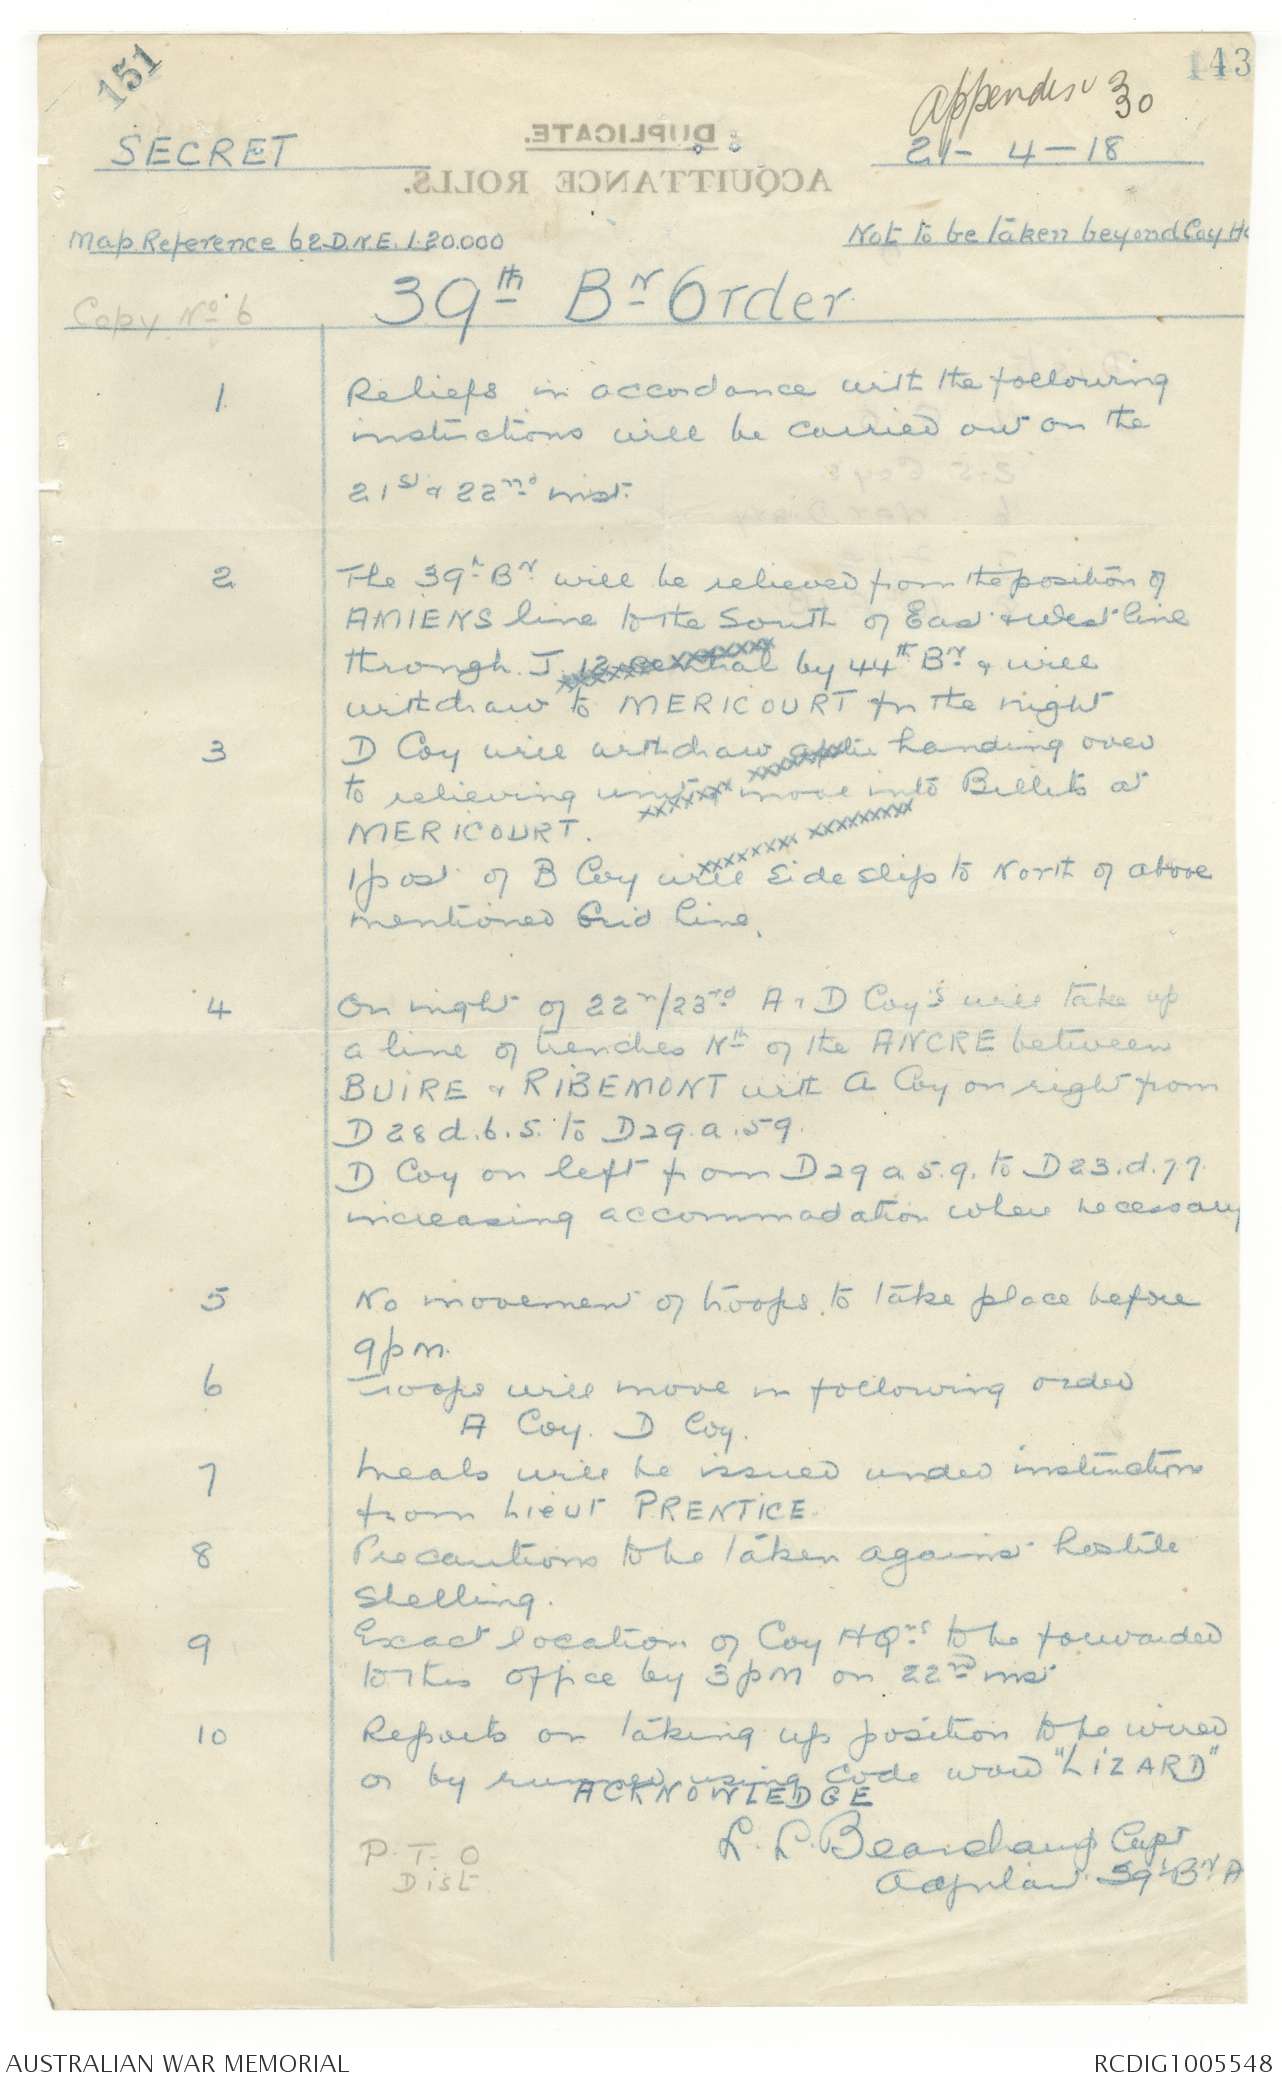 151
143
Appendix 3
30
SECRET
21 - 4 - 18
DUPLICATE.
ACQUITTANCE ROLLS.
Map Reference 62.D.N.E. 1.20.000
Not to be taken beyond Coy H
Copy No. 6
39th Bn Order
1 Reliefs in accordance with the following
instructions will be carried out on the
21st & 22nd inst.
2 The 39th Bn will be relieved from the position of
AMIENS line to the South of East & West line
through J.12 central by 44th Bn & will
withdraw to MERICOURT for the night
3 D Coy will withdraw after handing over
to relieving unit & move into Billets at
MERICOURT.
1 post of B Coy will side slip to North of above
mentioned Grid Line.
4 On night of 22nd/23rd A & D Coy's will take up
a line of trenches Nth of the ANCRE between
BUIRE & RIBEMONT with A Coy on right from
D28d.6.5. to D29.a.59.
D Coy on left from D29a.5.9. to D23.d.77.
increasing accommodation where necessary
5 No movement of troops to take place before
9pm.
6 Troops will move in following order
A Coy. D Coy.
7 Meals will be issued under instructions
from Lieut PRENTICE.
8 Precautions to be taken against hostile
shelling.
9 Exact location of Coy HQrs to be forwarded
to this office by 3pm on 22nd inst
10 Reports on taking up position to be wired
or by runner using code word "LIZARD"
ACKNOWLEDGE
P.T.O
Dist
L. L. Beauchamp Capt
Adjutant 39th Bn A
AUSTRALIAN WAR MEMORIAL
RCDIG1005548